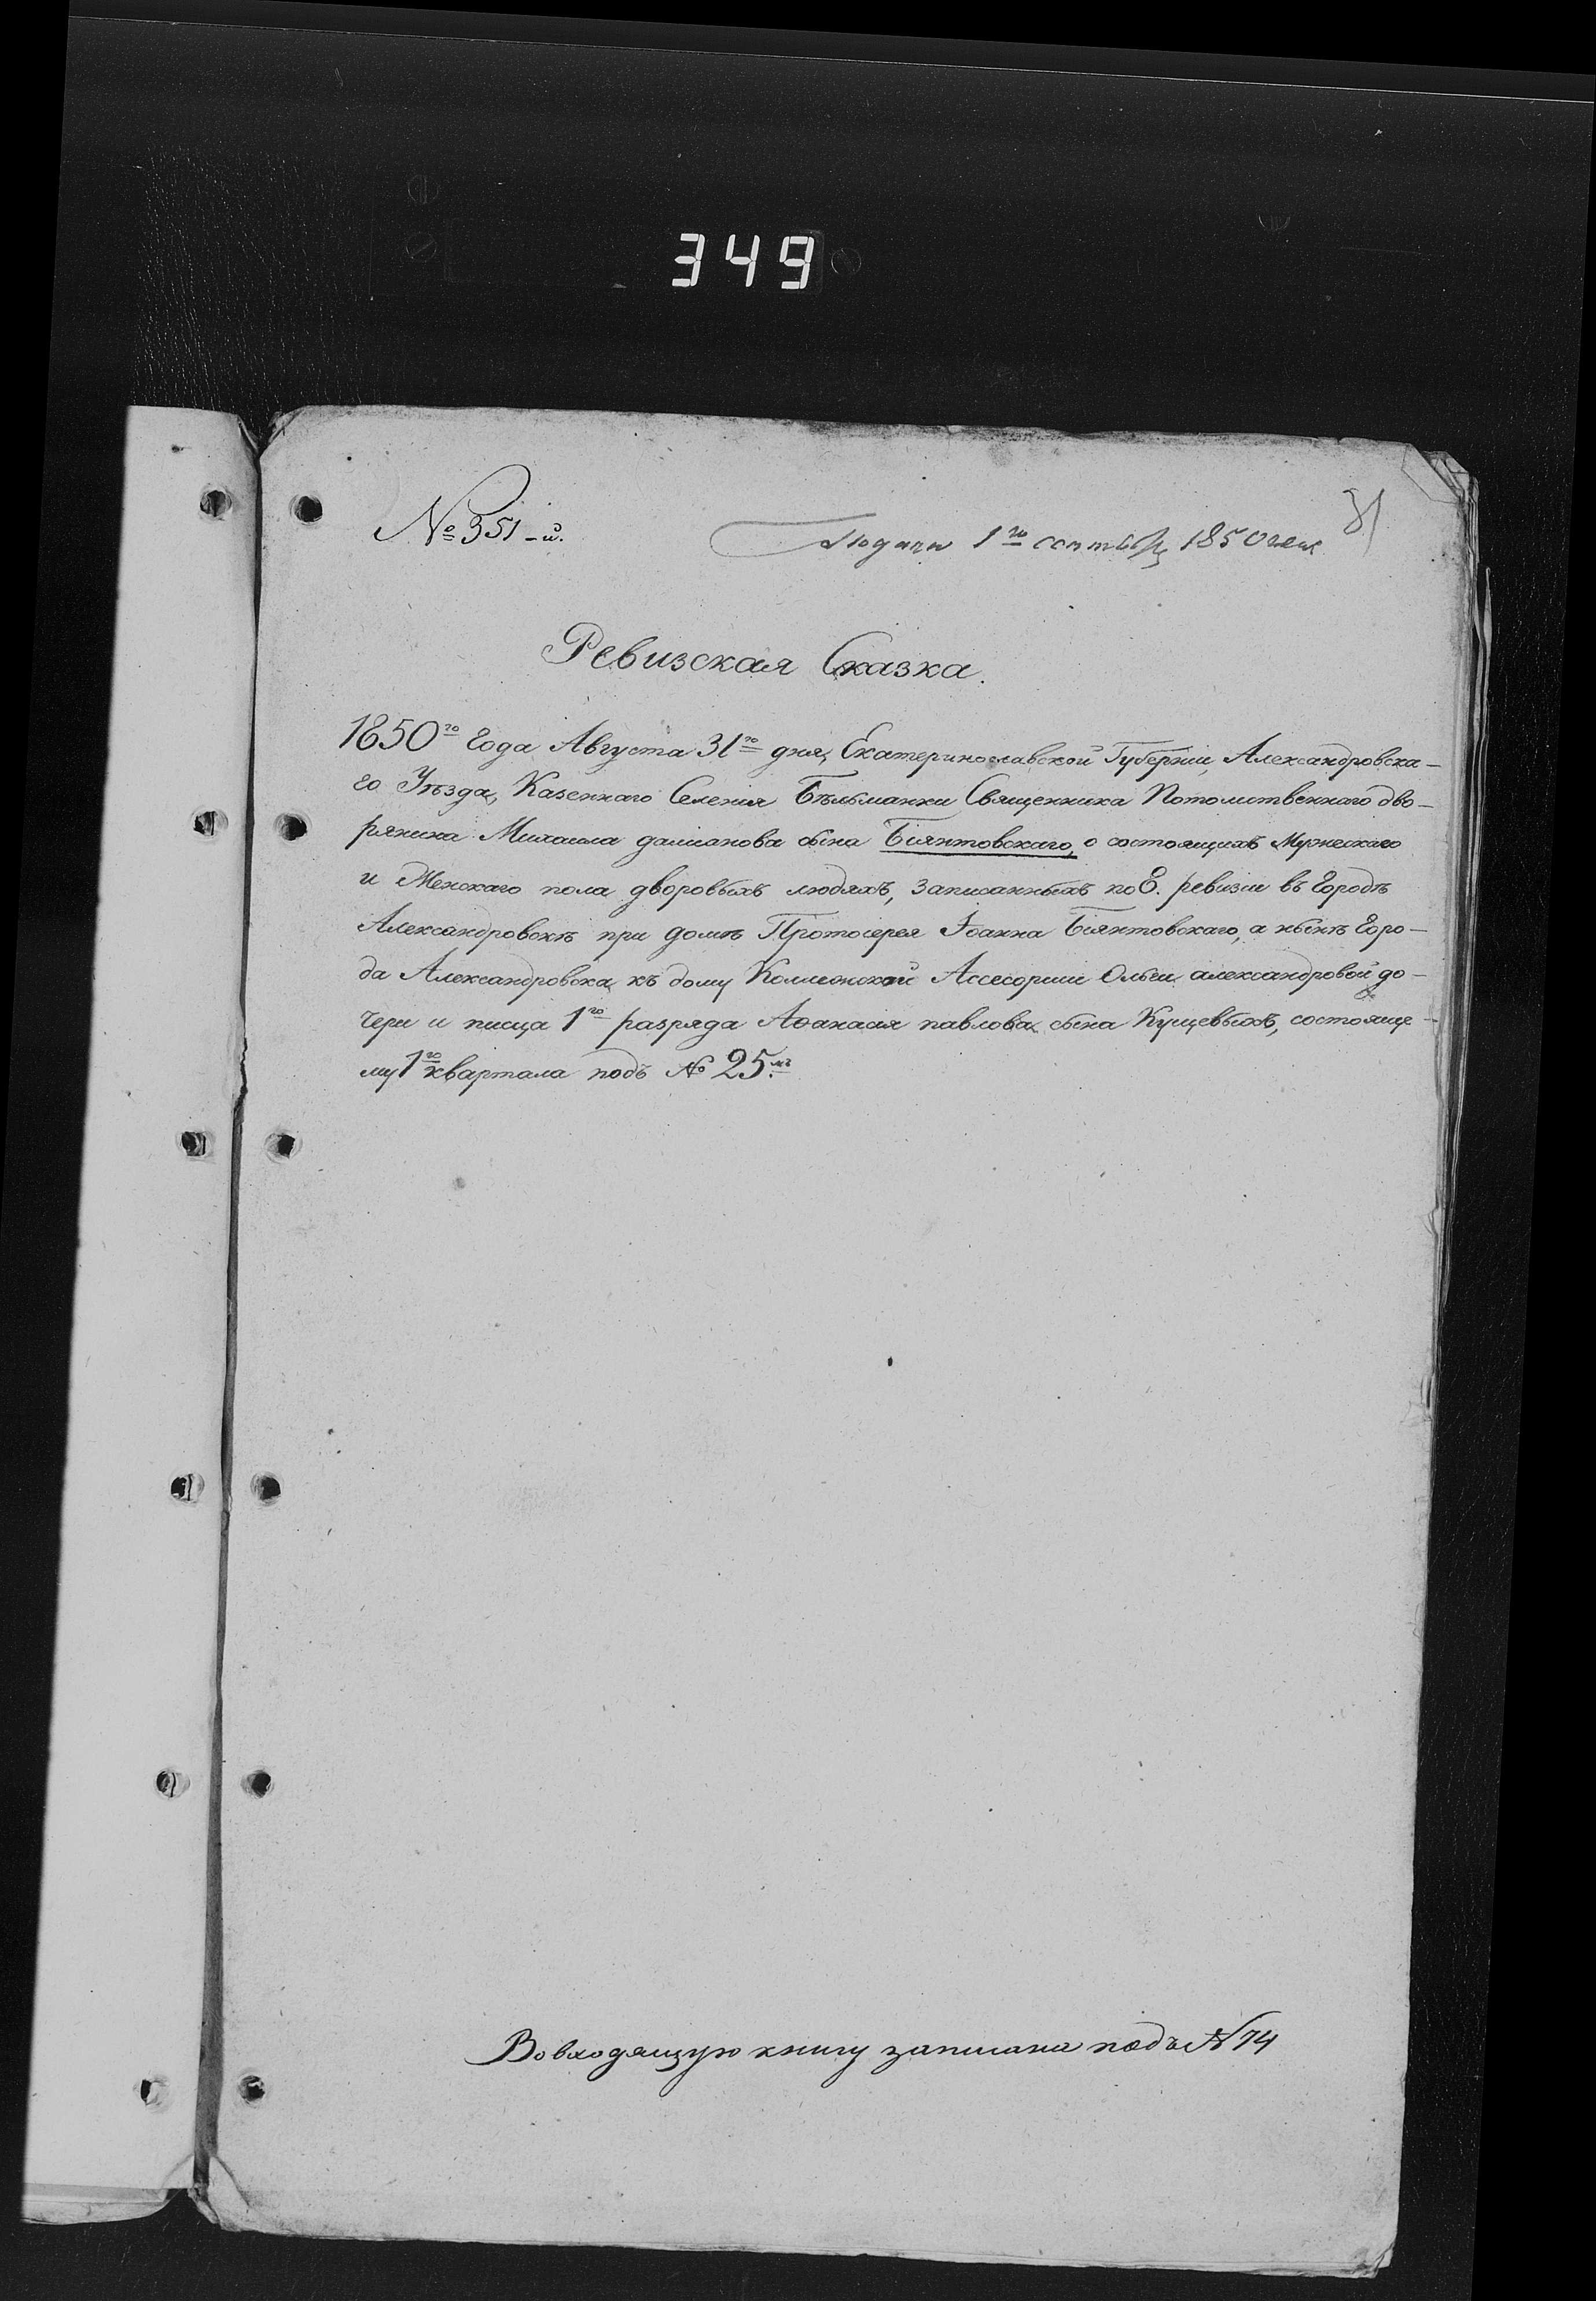 349
№ 351-й.
Подана 1го сентября 1850 года
81
Ревизская Сказка.
1850го Года Августа 31го дня, Екатеринославской Губерніи, Александровска-
го Уѣзда, Казеннаго Селенія Бѣльманки Священника Потомственнаго дво-
рянина Михаила даміанова сына Біянтовскаго, о состоящихъ Мужескаго
и Женскаго пола дворовыхъ людяхъ, записанныхъ по 8. ревизіи въ Городѣ
Александровскѣ при домѣ Протоіерея Іоанна Біянтовскаго, а нынѣ Горо-
да Александровска къ дому Коллежской Ассесорши Ольги александровой до-
чери и писца 1го разряда Аѳанасія павлова сына Кущевыхъ, состояще-
му 1го квартала подъ № 25мъ
Во входящую книгу записана подъ № 74